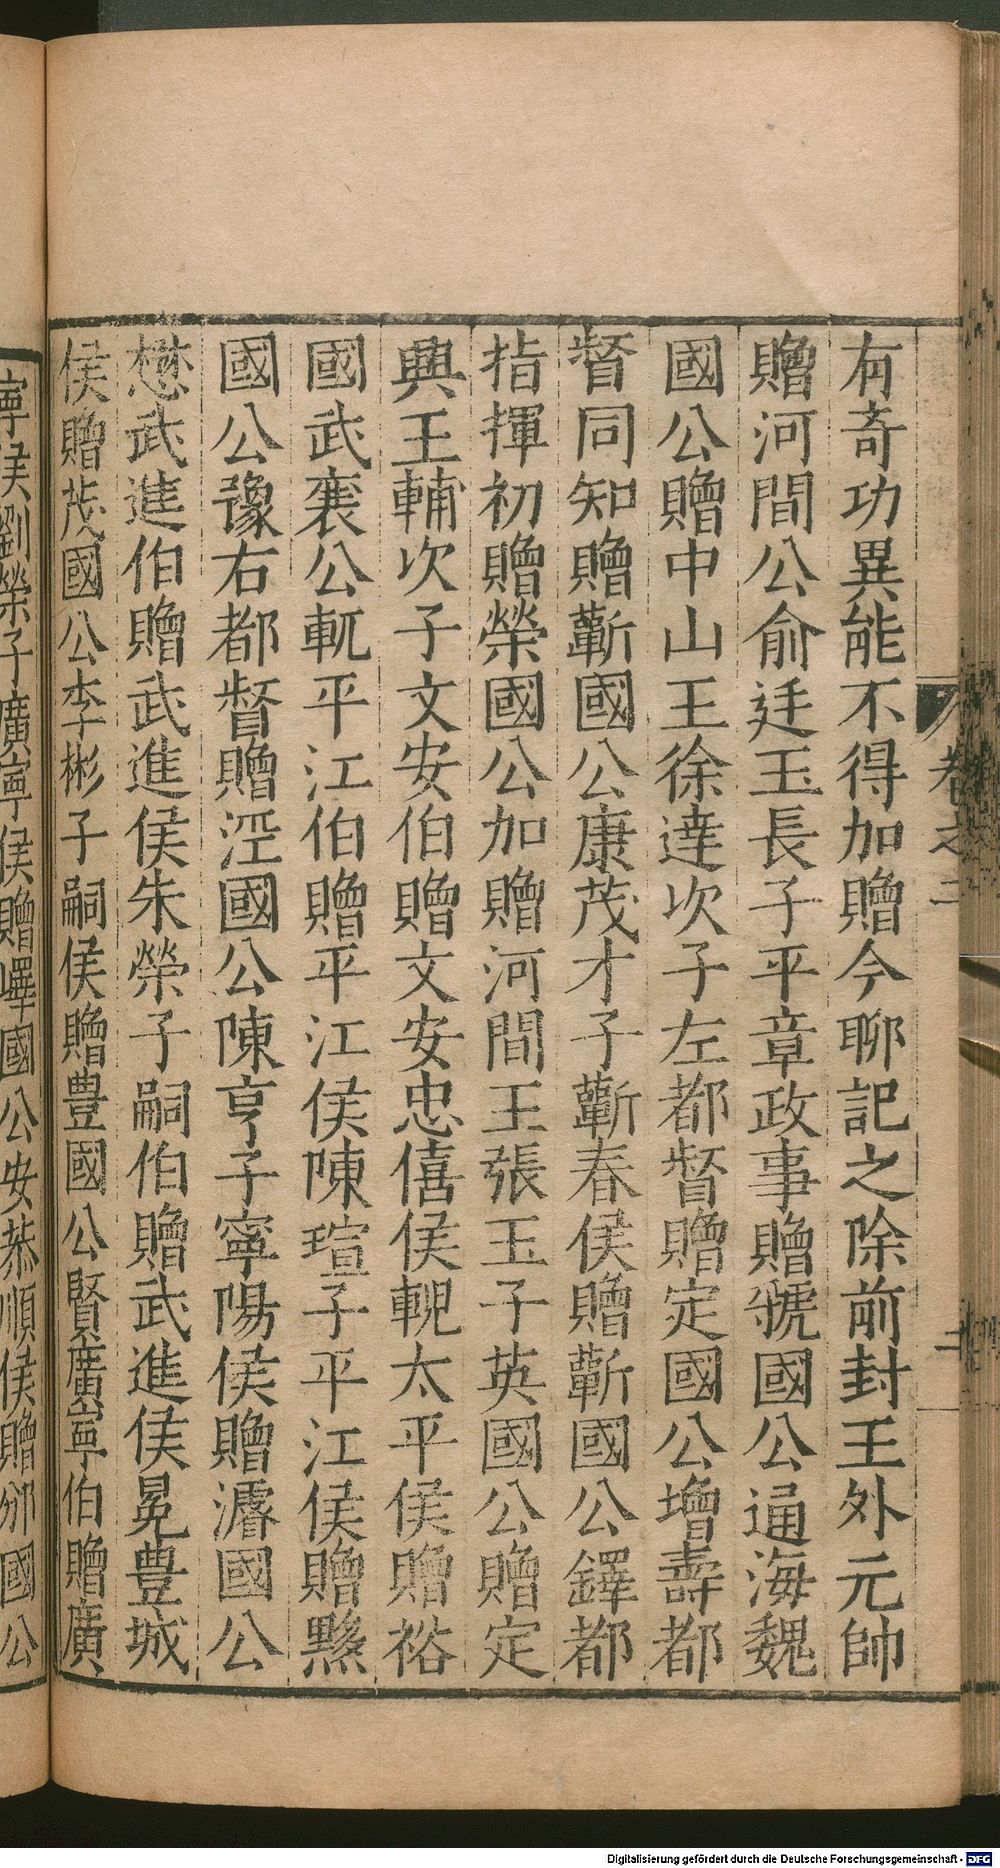 卷之二
二
有奇功異能不得加贈今聊記之除前封王外元帥
贈河間公俞廷玉長子平章政事贈虢國公通海魏
國公贈中山王徐達次子左都督贈定國公增壽都
督同知贈蘄國公康茂才子蘄春侯贈蘄國公鐸都
指揮初贈榮國公加贈河間王張玉子英國公贈定
興王輔次子文安伯贈文安忠僖侯輗太平侯贈裕
國武襄公軏平江伯贈平江侯陳瑄子平江侯贈黟
國公豫右都督贈涇國公陳亨子寧陽侯贈濬國公
懋武進伯贈武進侯朱榮子嗣伯贈武進侯冕豊城
侯贈茂國公李彬子嗣侯贈豊國公賢廣寧伯贈廣
寧侯劉榮子廣寧侯贈嶧國公安恭順侯贈邠國公
Digitalisierung gefördert durch die Deutsche Forschungsgemeinschaft - DFG